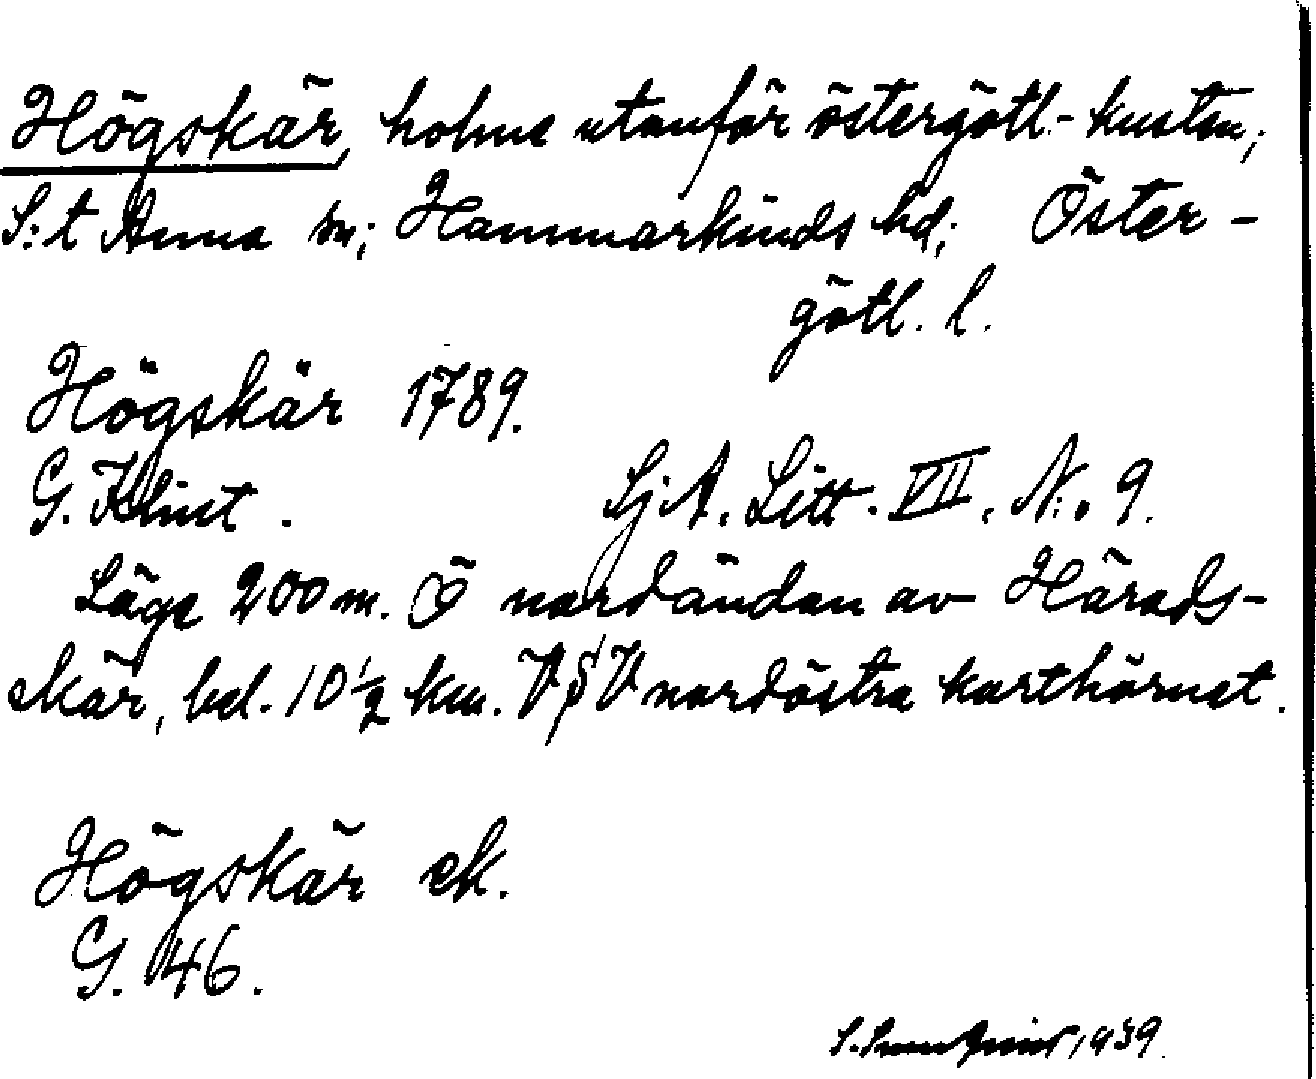 Högskär, holme utanför östergötl.-kusten;
S:t Anna sn; Hammarkinds hd; Öster-
götl. l.
Högskär 1789.
G. Klint. Sj A. Litt. VII. N:. 9.
Läge 200 m. Ö nordändan av Härads-
skär, bel. 10 1/2 km. V§V nordöstra karthörnet.
Högskär ek.
G. 46.
1939